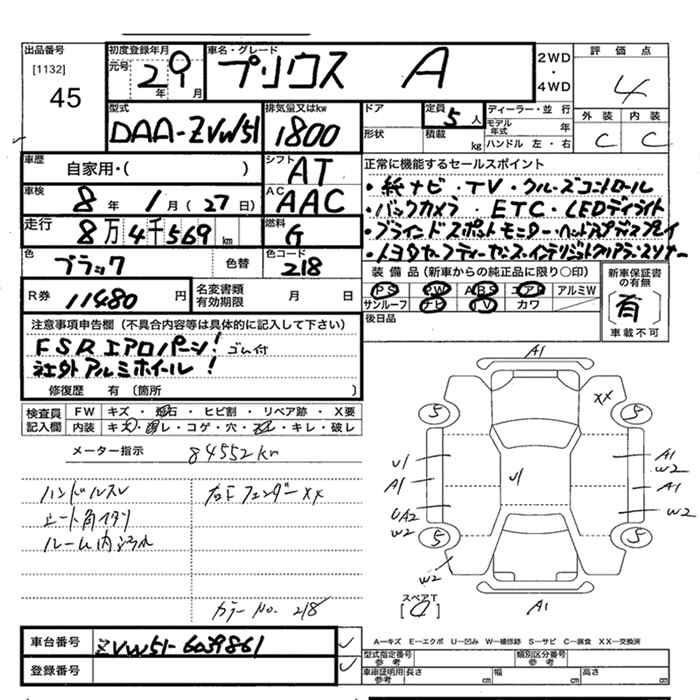 出品番号
[1132]
45
初度登録年月
元号 29 年 9 月
車名・グレード
プリウス A
2WD
・
4WD
評価点
4
外装 内装
C C
型式
DAA-ZVW51
排気量又はkw
1800
ドア
形状
定員 5 人
積載 kg
ディーラー・並行
モデル年式 年
ハンドル 左・右
車歴
自家用・( )
シフト
AT
車検
8 年 1 月 (27 日)
AC
AAC
走行
8万4千569 km
燃料
G
色
ブラック
色替
色コード
218
R券 11480 円
名変書類
有効期限 月 日
正常に機能するセールスポイント
・純ナビ・TV・クルーズコントロール
・バックカメラ・ETC・LEDデイライト
・ブラインドスポットモニター・ヘッドアップディスプレイ
・トヨタセーフティーセンス・インテリジェントクリアランスソナー
装備品(新車からの純正品に限り○印)
PS PW ABS エアB アルミW
サンルーフ ナビ TV カワ
後日品
新車保証書
の有無
有
車載不可
注意事項申告欄(不具合内容等は具体的に記入して下さい)
FSRエアロパーツ! ゴム付
社外アルミホイール!
修復歴 有 〔箇所 〕
検査員
記入欄
FW キズ・飛石・ヒビ割・リペア跡・X要
内装 キズ・汚レ・コゲ・穴・スレ・キレ・破レ
メーター指示 84552km
ハンドルスレ
シート角イタリ
ルーム内汚れ
右Fフェンダー XX
カラー No. 218
A1
XX
5 5
U1
A1
UA2
W2
U1
A1
W2
A1
W2
5 5
W2
A1
スペアT
車台番号 ZVW51-6039861
登録番号
A―キズ E―エクボ U―凹み W―補修跡 S―サビ C―腐食 XX―交換済
型式指定番号
参考
類別区分番号
参考
車庫証明用
参考
長さ cm 幅 cm 高さ cm